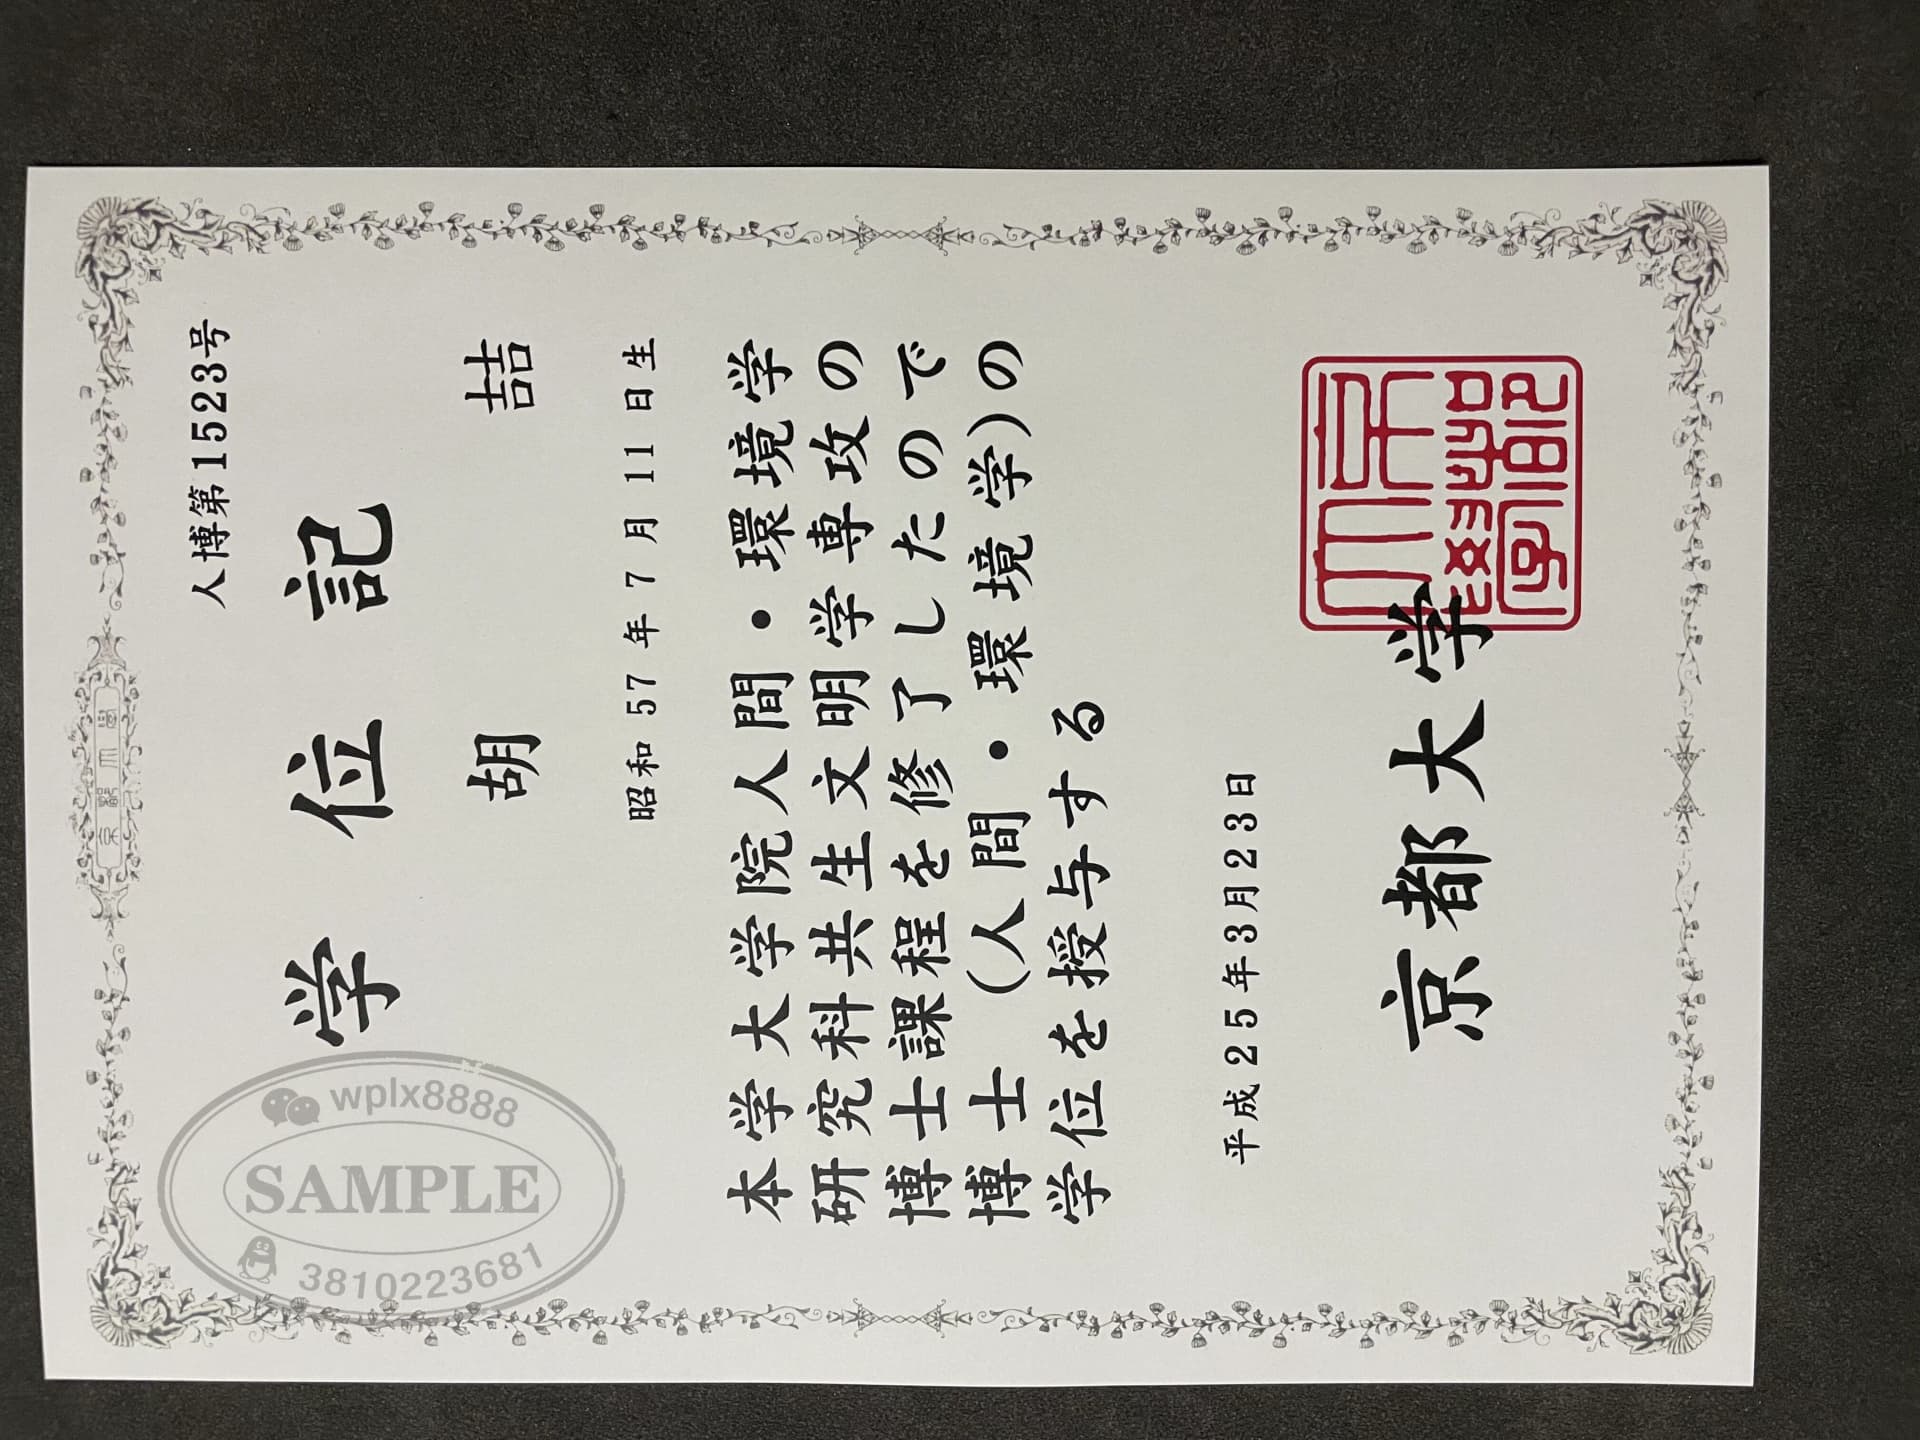 人博第1523号
学位記
胡 喆
昭和57年7月11日生
本学大学院人間・環境学
研究科共生文明学専攻の
博士課程を修了したので
博士(人間・環境学)の
学位を授与する
平成25年3月23日
京都大学
wplx8888
SAMPLE
3810223681